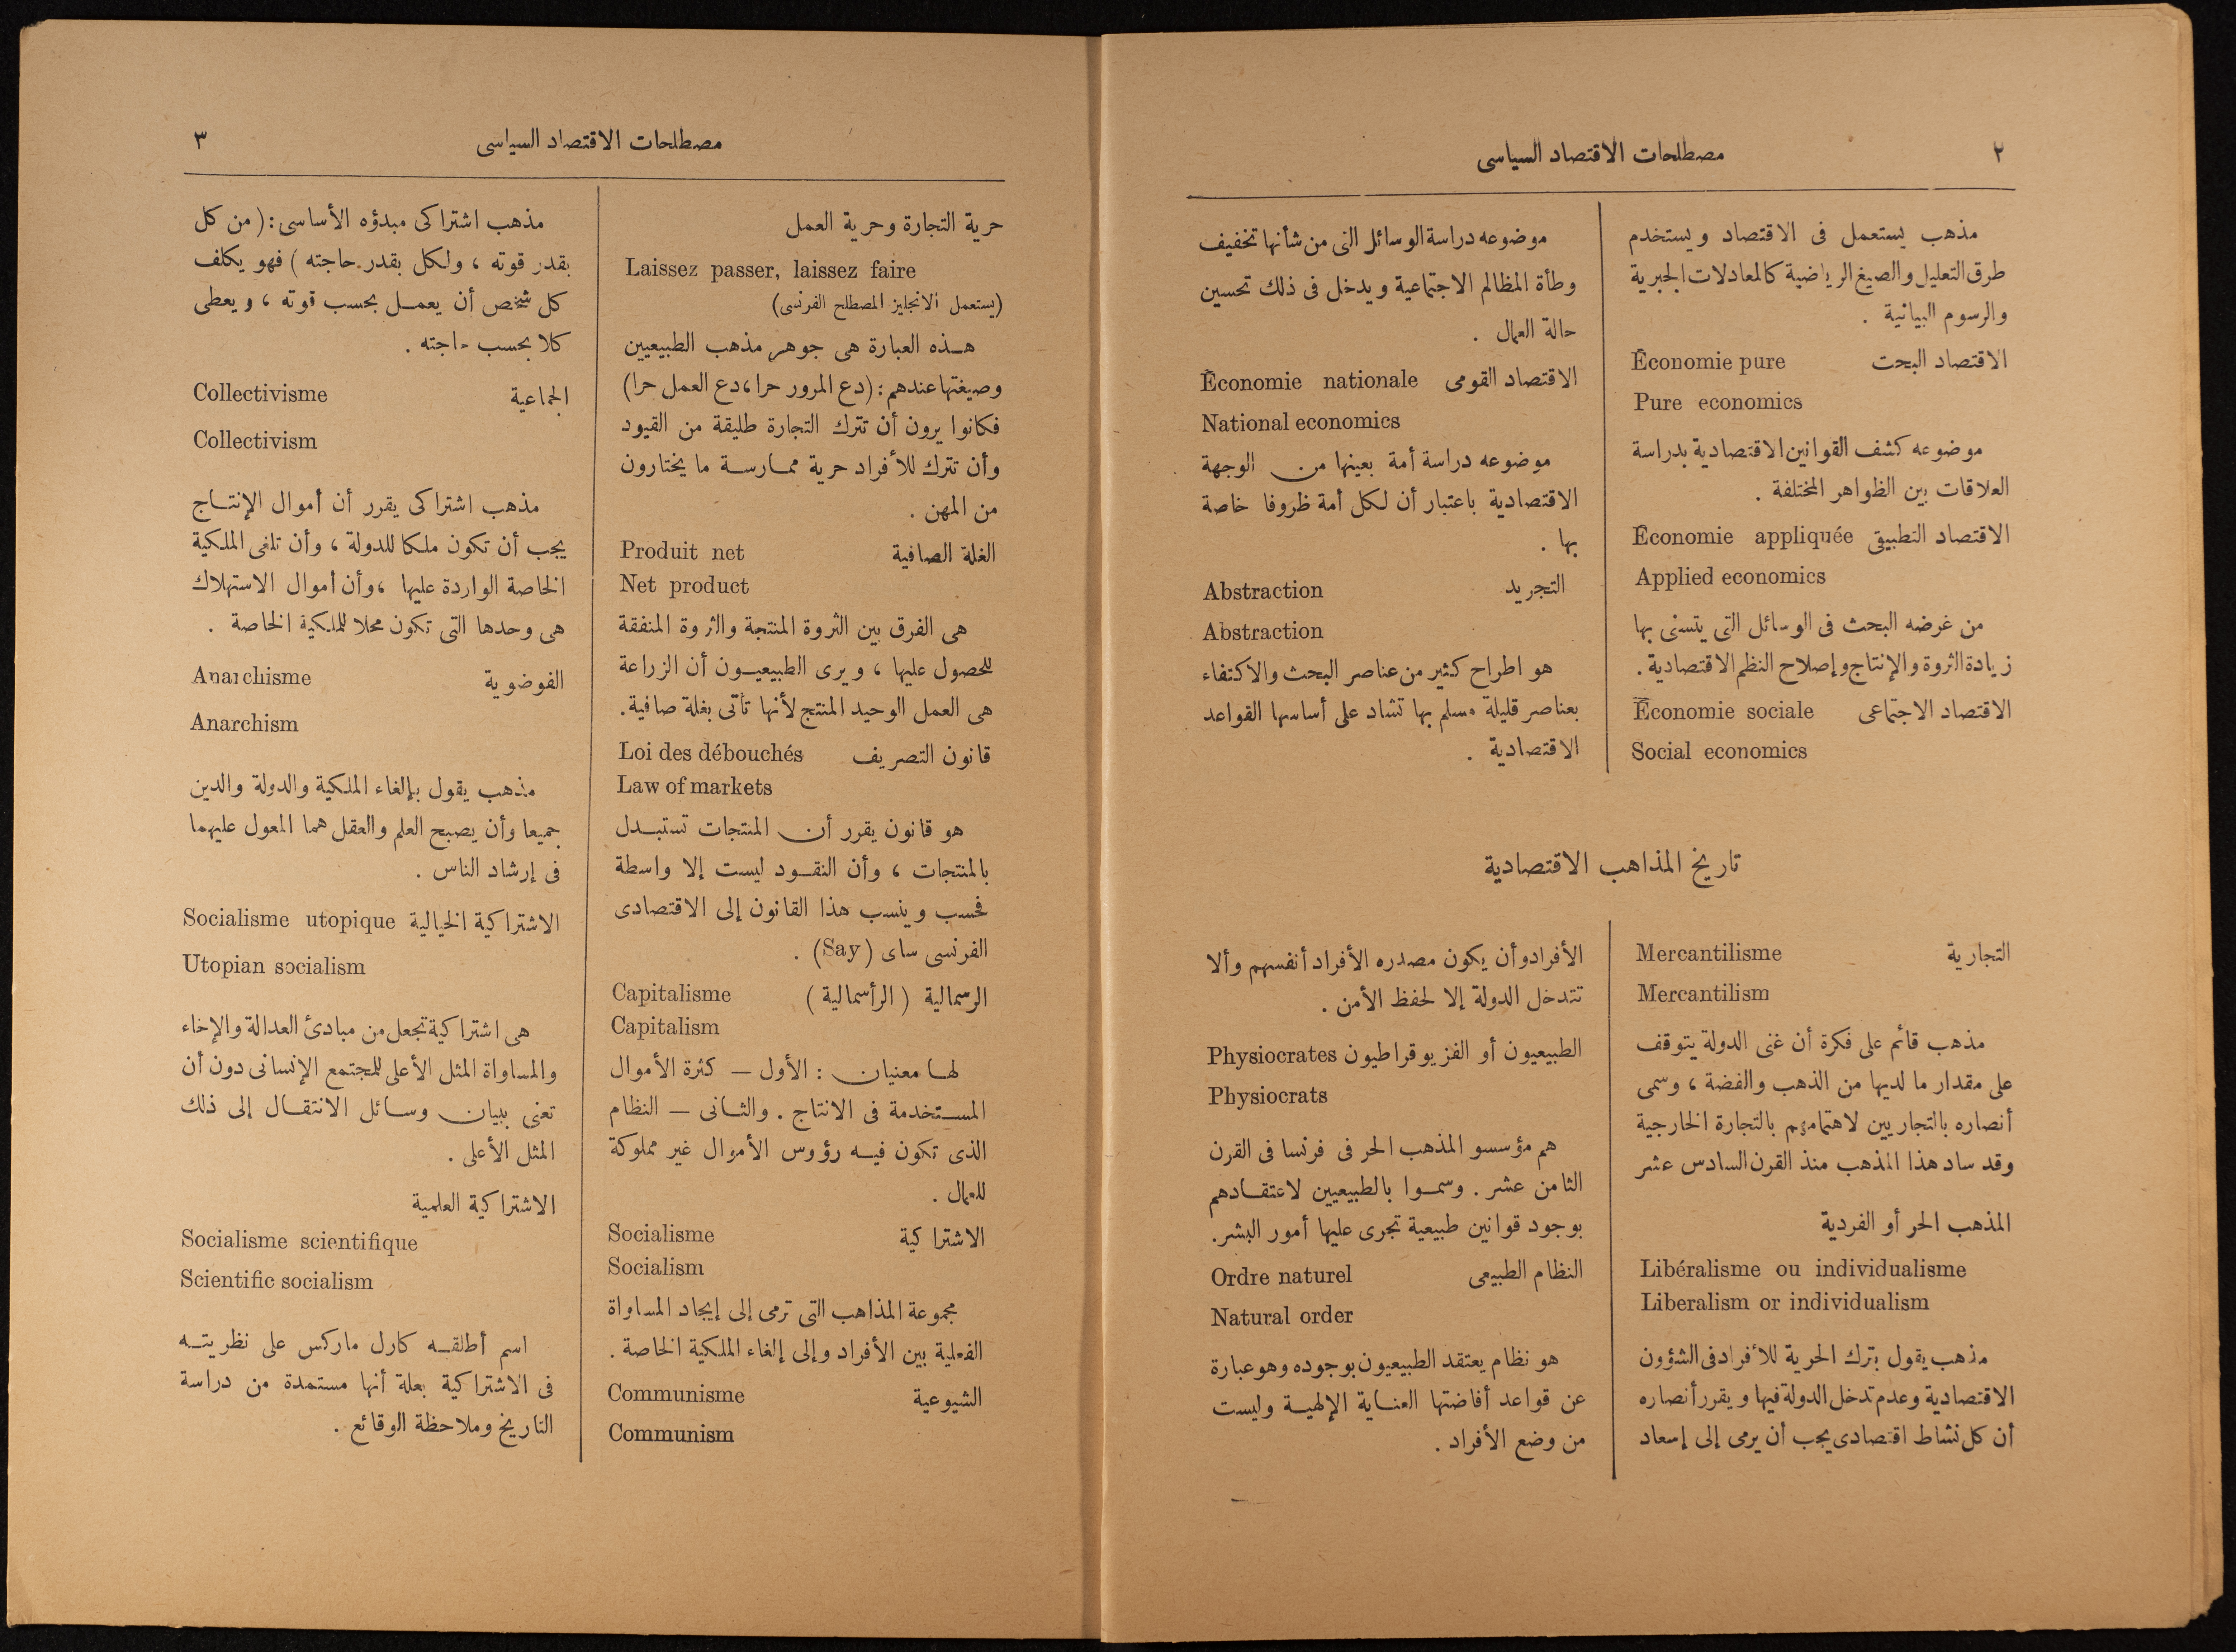 ٢
مصطلحات الاقتصاد السياسى
مذهب يستعمل فى الاقتصاد ويستخدم
طرق التعليل والصيغ الرياضية كالمعادلات الجبرية
والرسوم البيانية .
الاقتصاد البحت Économie pure
Pure economics
موضوعه كشف القوانين الاقتصادية بدراسة
العلاقات بين الظواهر المختلفة .
الاقتصاد التطبيقى Économie appliquée
Applied economics
من غرضه البحث فى الوسائل التى يتسنى بها
زيادة الثروة والإنتاج وإصلاح النظم الاقتصادية .
الاقتصاد الاجتماعى Économie sociale
Social economics
موضوعه دراسة الوسائل التى من شأنها تخفيف
وطأة المظالم الاجتماعية ويدخل فى ذلك تحسين
حالة العمال .
الاقتصاد القومى Économie nationale
National economics
موضوعه دراسة أمة بعينها من الوجهة
الاقتصادية باعتبار أن لكل أمة ظروفا خاصة
بها .
التجريد Abstraction
Abstraction
هو اطراح كثير من عناصر البحث والاكتفاء
بعناصر قليلة مسلم بها تشاد على أساسها القواعد
الاقتصادية .
تاريخ المذاهب الاقتصادية
التجارية Mercantilisme
Mercantilism
مذهب قائم على فكرة أن غنى الدولة يتوقف
على مقدار ما لديها من الذهب والفضة ، وسمى
أنصاره بالتجاريين لاهتمامهم بالتجارة الخارجية
وقد ساد هذا المذهب منذ القرن السادس عشر
المذهب الحر أو الفردية
Libéralisme ou individualisme
Liberalism or individualism
مذهب يقول بترك الحرية للأفراد فى الشؤون
الاقتصادية وعدم تدخل الدولة فيها ويقرر أنصاره
أن كل نشاط اقتصادى يجب أن يرمى إلى إسعاد
الأفراد وأن يكون مصدره الأفراد أنفسهم وألا
تتدخل الدولة إلا لحفظ الأمن .
الطبيعيون أو الفزيوقراطيون Physiocrates
Physiocrats
هم مؤسسو المذهب الحر فى فرنسا فى القرن
الثامن عشر . وسموا بالطبيعيين لاعتقادهم
بوجود قوانين طبيعية تجرى عليها أمور البشر.
النظام الطبيعى Ordre naturel
Natural order
هو نظام يعتقد الطبيعيون بوجوده وهو عبارة
عن قواعد أفاضتها العناية الإلهية وليست
من وضع الأفراد .
مصطلحات الاقتصاد السياسى
٣
حرية التجارة وحرية العمل
Laissez passer, laissez faire
(يستعمل الانجليز المصطلح الفرنسى)
هذه العبارة هى جوهر مذهب الطبيعيين
وصيغتها عندهم : (دع المرور حرا، دع العمل حرا)
فكانوا يرون أن تترك التجارة طليقة من القيود
وأن تترك للأفراد حرية ممارسة ما يختارون
من المهن .
الغلة الصافية Produit net
Net product
هى الفرق بين الثروة المنتجة والثروة المنفقة
للحصول عليها ، ويرى الطبيعيون أن الزراعة
هى العمل الوحيد المنتج لأنها تأتى بغلة صافية.
قانون التصريف Loi des débouchés
Law of markets
هو قانون يقرر أن المنتجات تستبدل
بالمنتجات ، وأن النقود ليست إلا واسطة
فحسب وينسب هذا القانون إلى الاقتصادى
الفرنسى ساى (Say) .
الرسمالية (الرأسمالية) Capitalisme
Capitalism
لها معنيان : الأول — كثرة الأموال
المستخدمة فى الانتاج . والثانى — النظام
الذى تكون فيه رؤوس الأموال غير مملوكة
للعمال .
الاشتراكية Socialisme
Socialism
مجموعة المذاهب التى ترمى إلى إيجاد المساواة
الفعلية بين الأفراد وإلى إلغاء الملكية الخاصة .
الشيوعية Communisme
Communism
مذهب اشتراكى مبدؤه الأساسى : (من كل
بقدر قوته ، ولكل بقدر حاجته) فهو يكلف
كل شخص أن يعمل بحسب قوته ، ويعطى
كلا بحسب حاجته .
الجماعية Collectivisme
Collectivism
مذهب اشتراكى يقرر أن أموال الإنتاج
يجب أن تكون ملكا للدولة ، وأن تلغى الملكية
الخاصة الواردة عليها ، وأن أموال الاستهلاك
هى وحدها التى تكون محلا للملكية الخاصة .
الفوضوية Anarchisme
Anarchism
مذهب يقول بإلغاء الملكية والدولة والدين
جميعا وأن يصبح العلم والعقل هما المعول عليهما
فى إرشاد الناس .
الاشتراكية الخيالية Socialisme utopique
Utopian socialism
هى اشتراكية تجعل من مبادئ العدالة والإخاء
والمساواة المثل الأعلى للمجتمع الإنسانى دون أن
تعنى ببيان وسائل الانتقال إلى ذلك
المثل الأعلى .
الاشتراكية العلمية
Socialisme scientifique
Scientific socialism
اسم أطلقه كارل ماركس على نظريته
فى الاشتراكية بعلة أنها مستمدة من دراسة
التاريخ وملاحظة الوقائع .